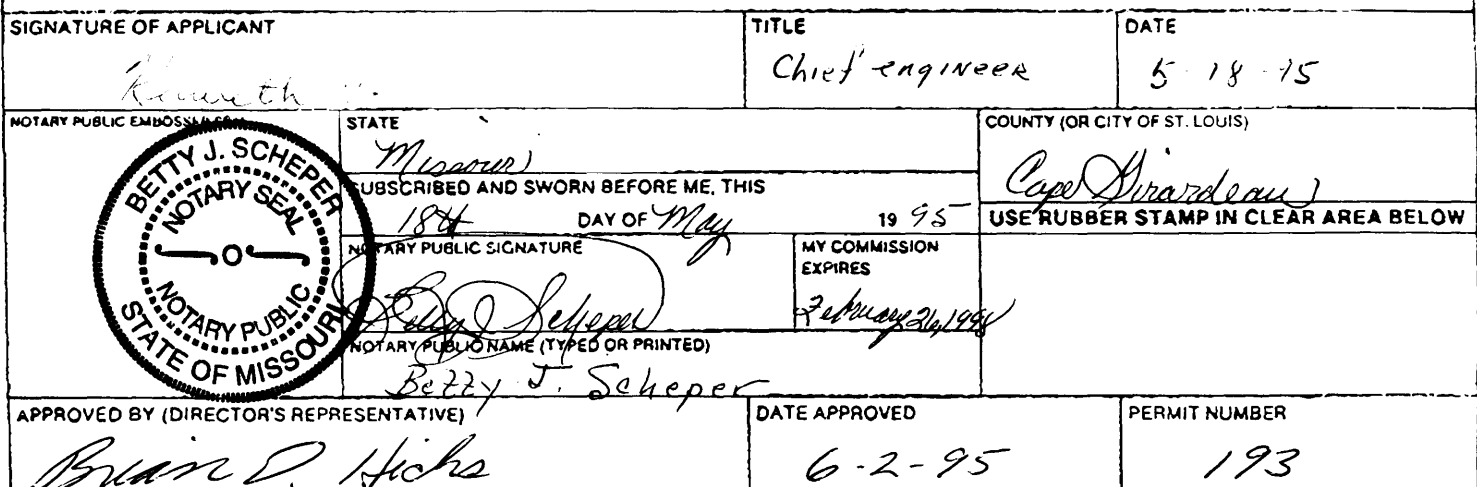 SIGNATURE OF APPLICANT
Kenneth
TITLE
Chief engineer
DATE
5-18-95
NOTARY PUBLIC
BETTY J. SCHEPER
NOTARY SEAL
NOTARY PUBLIC
STATE OF MISSOURI
STATE
Missouri
COUNTY (OR CITY OF ST. LOUIS)
Cape Girardeau
SUBSCRIBED AND SWORN BEFORE ME, THIS
18th DAY OF May 19 95
USE RUBBER STAMP IN CLEAR AREA BELOW
NOTARY PUBLIC SIGNATURE
Betty J Scheper
MY COMMISSION
EXPIRES
February 26, 1998
NOTARY PUBLIC NAME (TYPED OR PRINTED)
Betty J. Scheper
APPROVED BY (DIRECTOR'S REPRESENTATIVE)
Brian D. Hicks
DATE APPROVED
6-2-95
PERMIT NUMBER
193